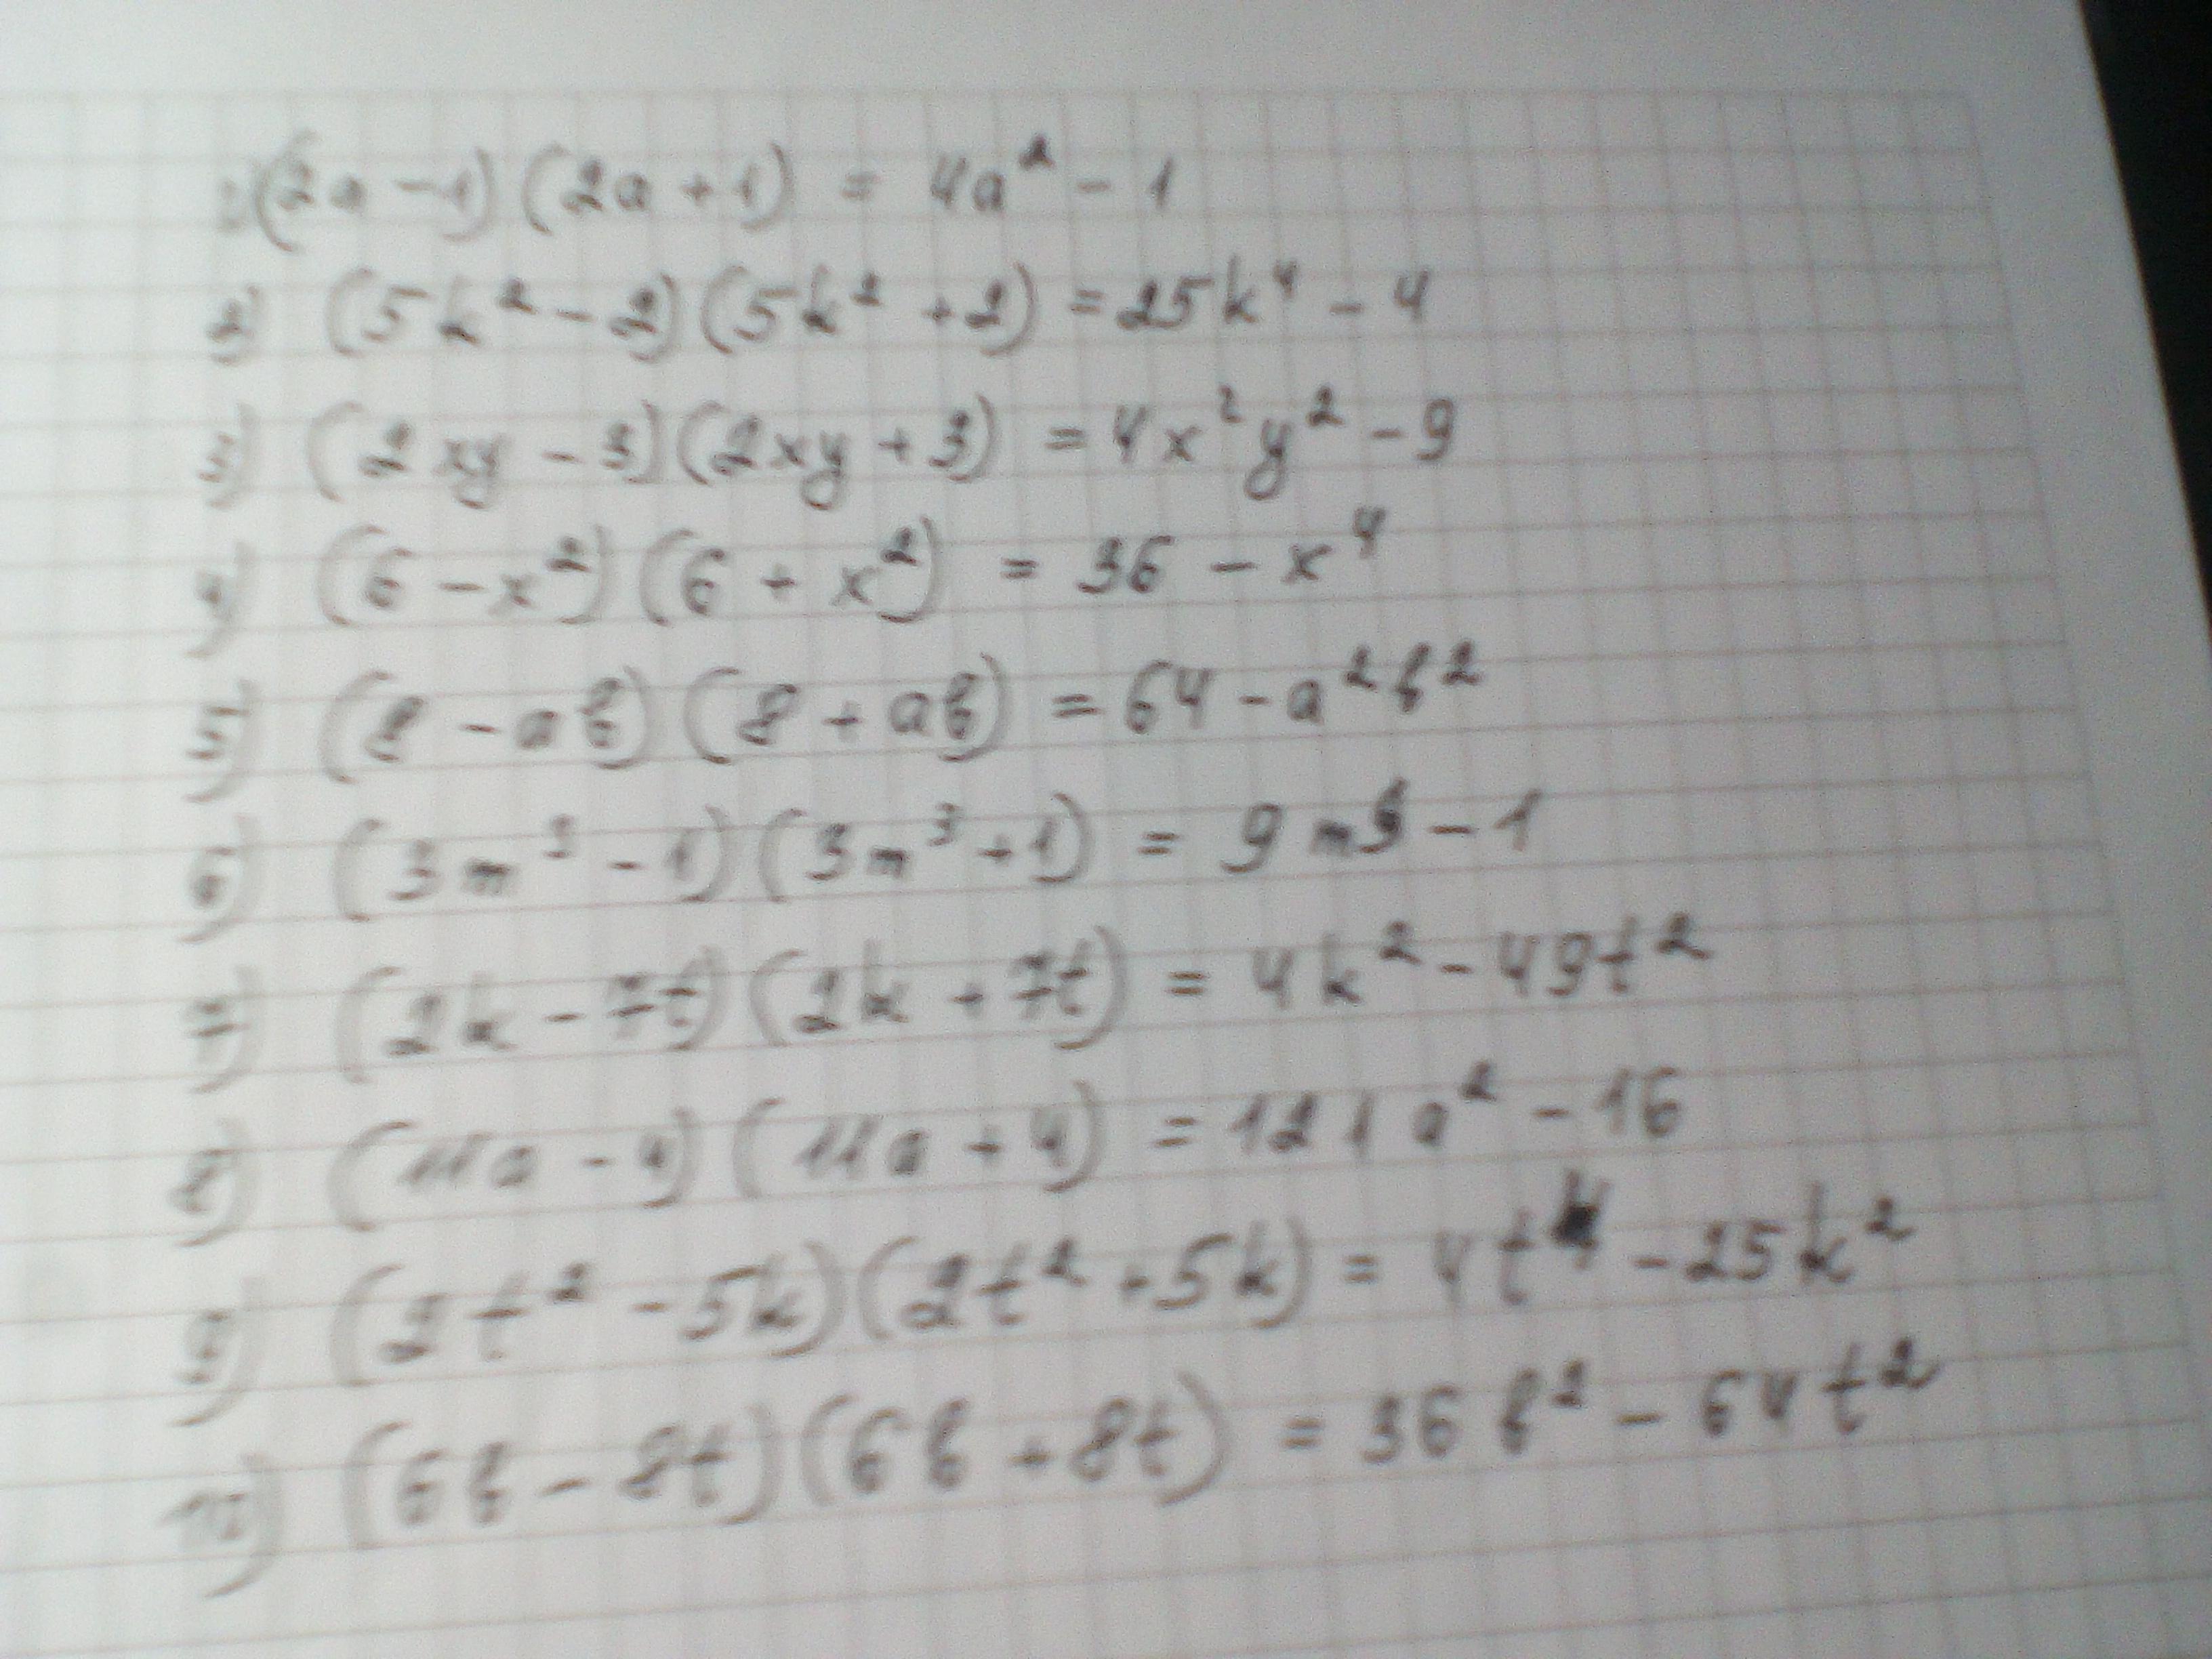 1) (2a - 1) (2a + 1) = 4a² - 1
2) (5k² - 2) (5k² + 2) = 25k⁴ - 4
3) (2xy - 3) (2xy + 3) = 4x²y² - 9
4) (6 - x²) (6 + x²) = 36 - x⁴
5) (8 - ab) (8 + ab) = 64 - a²b²
6) (3m³ - 1) (3m³ + 1) = 9m⁶ - 1
7) (2k - 7t) (2k + 7t) = 4k² - 49t²
8) (11a - 4) (11a + 4) = 121a² - 16
9) (2t² - 5k) (2t² + 5k) = 4t⁴ - 25k²
10) (6b - 8t) (6b + 8t) = 36b² - 64t²